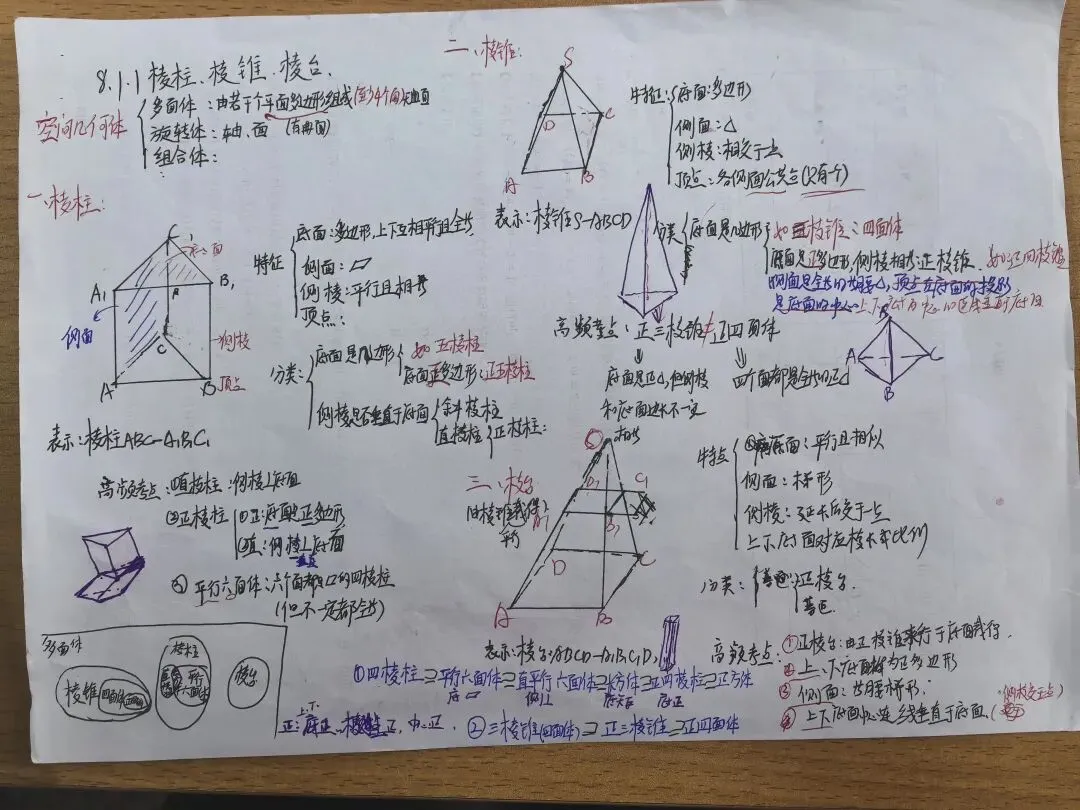 8.1.1 棱柱、棱锥、棱台.
空间几何体
多面体：由若干个平面多边形组成(至少4个面)
旋转体：轴、面
组合体：
一、棱柱：
A₁
B₁
侧面
C
A
B
侧棱
顶点
表示：棱柱ABC-A₁B₁C₁
特征
底面：多边形,上下互相平行且全等
侧面：▱
侧棱：平行且相等
顶点：
分类：
底面是几边形
如五棱柱
底面正多边形：正五棱柱
侧棱是否垂直于底面
斜棱柱
直棱柱
正棱柱：
高频考点：①直棱柱：侧棱⊥底面
②正棱柱
①正：底面是正多边形
②直：侧棱⊥底面
③平行六面体：六个面都是▱的四棱柱
(但不一定都全等)
多面体
棱锥
四面体
棱柱
平行六面体
棱台
二、棱锥：
S
D
C
A
B
表示：棱锥S-ABCD
特征：
底面：多边形
侧面：△
侧棱：相交于一点
顶点：各侧面公共点(只有一个)
分类
底面是几边形
如三棱锥：四面体
底面是正多边形,侧棱相等：正棱锥.
如：正四棱锥
侧面是全等的等腰△,顶点在底面的投影
是底面的中心
高频考点：正三棱锥≠正四面体
底面是正△,但侧棱
和底面边长不一定
相等
四个面都是全等的正△
A
C
B
三、棱台
由棱锥截得
平行
D₁
C₁
B₁
D
C
A
B
表示：棱台ABCD-A₁B₁C₁D₁
特点
底面：平行且相似
侧面：梯形
侧棱：延长后交于一点
上下底面对应棱长成比例
分类：
正棱台
高频考点：
①正棱台：由正棱锥平行于底面截得.
②上、下底面都为正多边形
③侧面：等腰梯形.
④上下底面中心连线垂直于底面.
(侧棱交于一点)
①四棱柱⊇平行六面体⊇直平行六面体⊇长方体⊇正四棱柱⊇正方体
底▱
侧⊥
底长方
底正
②三棱锥(四面体)⊇正三棱锥⊇正四面体